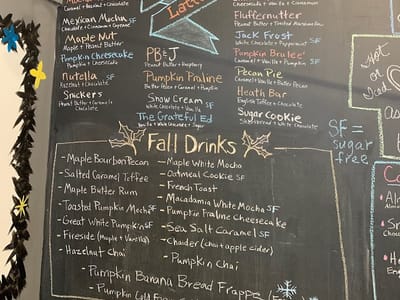 Caramel + Hazelnut + Cinnamon
Mexican Mocha SF
Chocolate + Cinnamon + Cayenne
Maple Nut
Maple + Peanut Butter
Pumpkin Cheesecake
Pumpkin + Cheesecake
Nutella SF
Hazelnut + Chocolate
Snickers
Peanut Butter + Caramel +
Chocolate
Latt
PB & J
Peanut Butter + Raspberry
Pumpkin Praline
Butter Pecan + Caramel + Pumpkin
Snow Cream SF
White Chocolate + Vanilla
The Grateful Ed
Vanilla + White Chocolate + Sugar
Cheesecake + Vanilla + Cinnamon
Fluffernutter
Peanut Butter + Toasted Marshmallow
Jack Frost SF
White Chocolate + Peppermint
Pumpkin Brulee'
Caramel + Vanilla + Pumpkin
Pecan Pie
Caramel + Vanilla + Butter Pecan
Heath Bar
English Toffee + Chocolate
Sugar Cookie
Shortbread + White Chocolate
SF =
sugar
free
Hot
or
Fall Drinks
- Maple Bourbon Pecan
- Salted Caramel Toffee
- Maple Butter Rum
- Toasted Pumpkin Mocha SF
- Great White Pumpkin SF
- Fireside (maple + vanilla)
- Hazelnut Chai
- Maple White Mocha
- Oatmeal Cookie SF
- French Toast
- Macadamia White Mocha SF
- Pumpkin Praline Cheesecake
- Sea Salt Caramel SF
- Chaider (chai + apple cider)
- Pumpkin Chai
- Pumpkin Banana Bread Frappe
- Pumpkin Cold